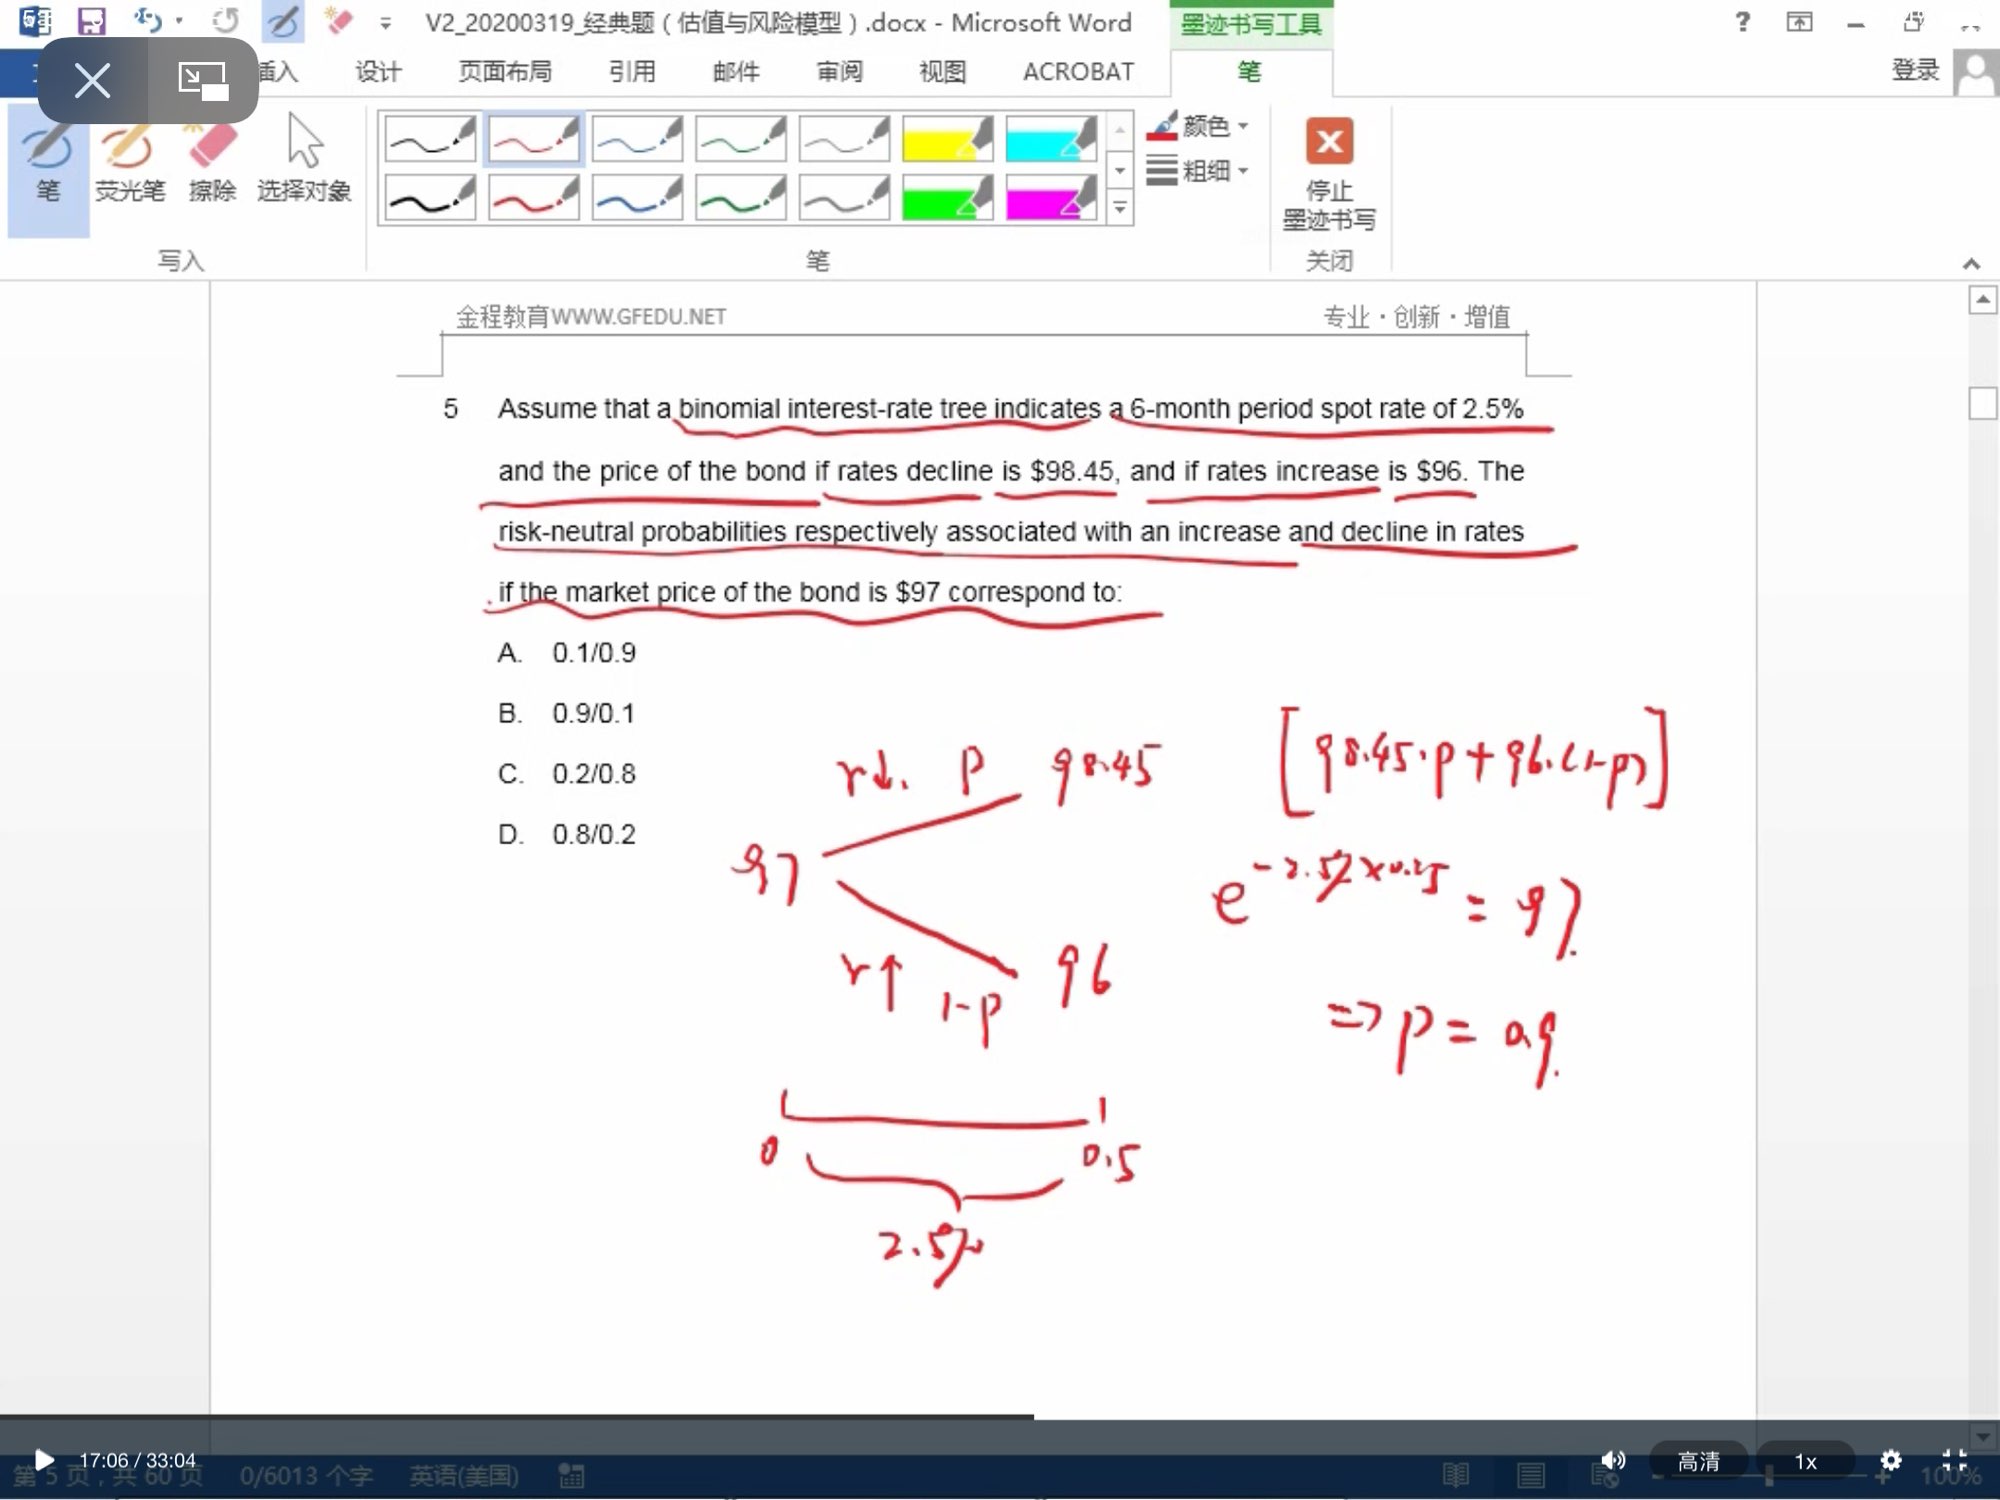 V2_20200319_经典题（估值与风险模型）.docx - Microsoft Word
墨迹书写工具
?
插入 设计 页面布局 引用 邮件 审阅 视图 ACROBAT 笔 登录
笔 荧光笔 擦除 选择对象
颜色
粗细
停止
墨迹书写
写入 笔 关闭
金程教育WWW.GFEDU.NET 专业·创新·增值
5 Assume that a binomial interest-rate tree indicates a 6-month period spot rate of 2.5%
and the price of the bond if rates decline is $98.45, and if rates increase is $96. The
risk-neutral probabilities respectively associated with an increase and decline in rates
if the market price of the bond is $97 correspond to:
A. 0.1/0.9
B. 0.9/0.1
C. 0.2/0.8
D. 0.8/0.2
r↓. p 98.45
[98.45·p+96·(1-p)]
97
e^-2.5%×0.5 = 97.
r↑ 1-p 96
=> p = 0.9.
0 0.5
2.5%
17:06 / 33:04 高清 1x
第 5 页，共 60 页 0/6013 个字 英语(美国) 100%